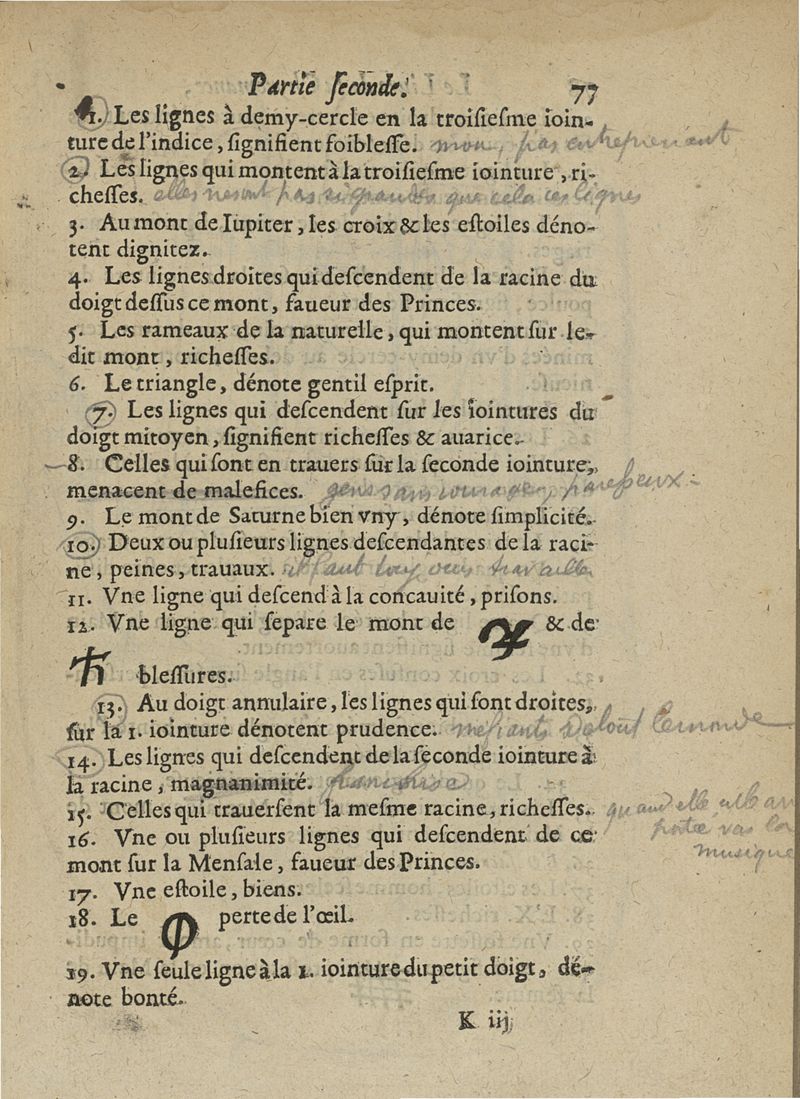 Partie ſeconde. 77
1. Les lignes à demy-cercle en la troiſieſme ioin-
ture de l'indice, ſignifient foibleſſe. mou, pas entreprenant
2. Les lignes qui montent à la troiſieſme iointure, ri-
cheſſes. elles ne sont pas si grandes que cela ces lignes
3. Au mont de Iupiter, les croix & les eſtoiles déno-
tent dignitez.
4. Les lignes droites qui deſcendent de la racine du
doigt deſſus ce mont, faueur des Princes.
5. Les rameaux de la naturelle, qui montent ſur le-
dit mont, richeſſes.
6. Le triangle, dénote gentil eſprit.
7. Les lignes qui deſcendent ſur les iointures du
doigt mitoyen, ſignifient richeſſes & auarice.
8. Celles qui ſont en trauers ſur la ſeconde iointure,
menacent de malefices. gens sans courage, paresseux
9. Le mont de Saturne bien vny, dénote ſimplicité.
10. Deux ou pluſieurs lignes deſcendantes de la raci-
ne, peines, trauaux. il faut
11. Vne ligne qui deſcend à la concauité, priſons.
12. Vne ligne qui ſepare le mont de ♃ & de
♄ bleſſures.
13. Au doigt annulaire, les lignes qui ſont droites,
ſur la 1. iointure dénotent prudence. de tout le monde
14. Les lignes qui deſcendent de la ſeconde iointure à
la racine, magnanimité.
15. Celles qui trauerſent la meſme racine, richeſſes. quand elle
16. Vne ou pluſieurs lignes qui deſcendent de ce
mont ſur la Menſale, faueur des Princes.
musique
17. Vne eſtoile, biens.
18. Le φ perte de l'œil.
19. Vne ſeule ligne à la 1. iointure du petit doigt, dé-
note bonté.
K iij